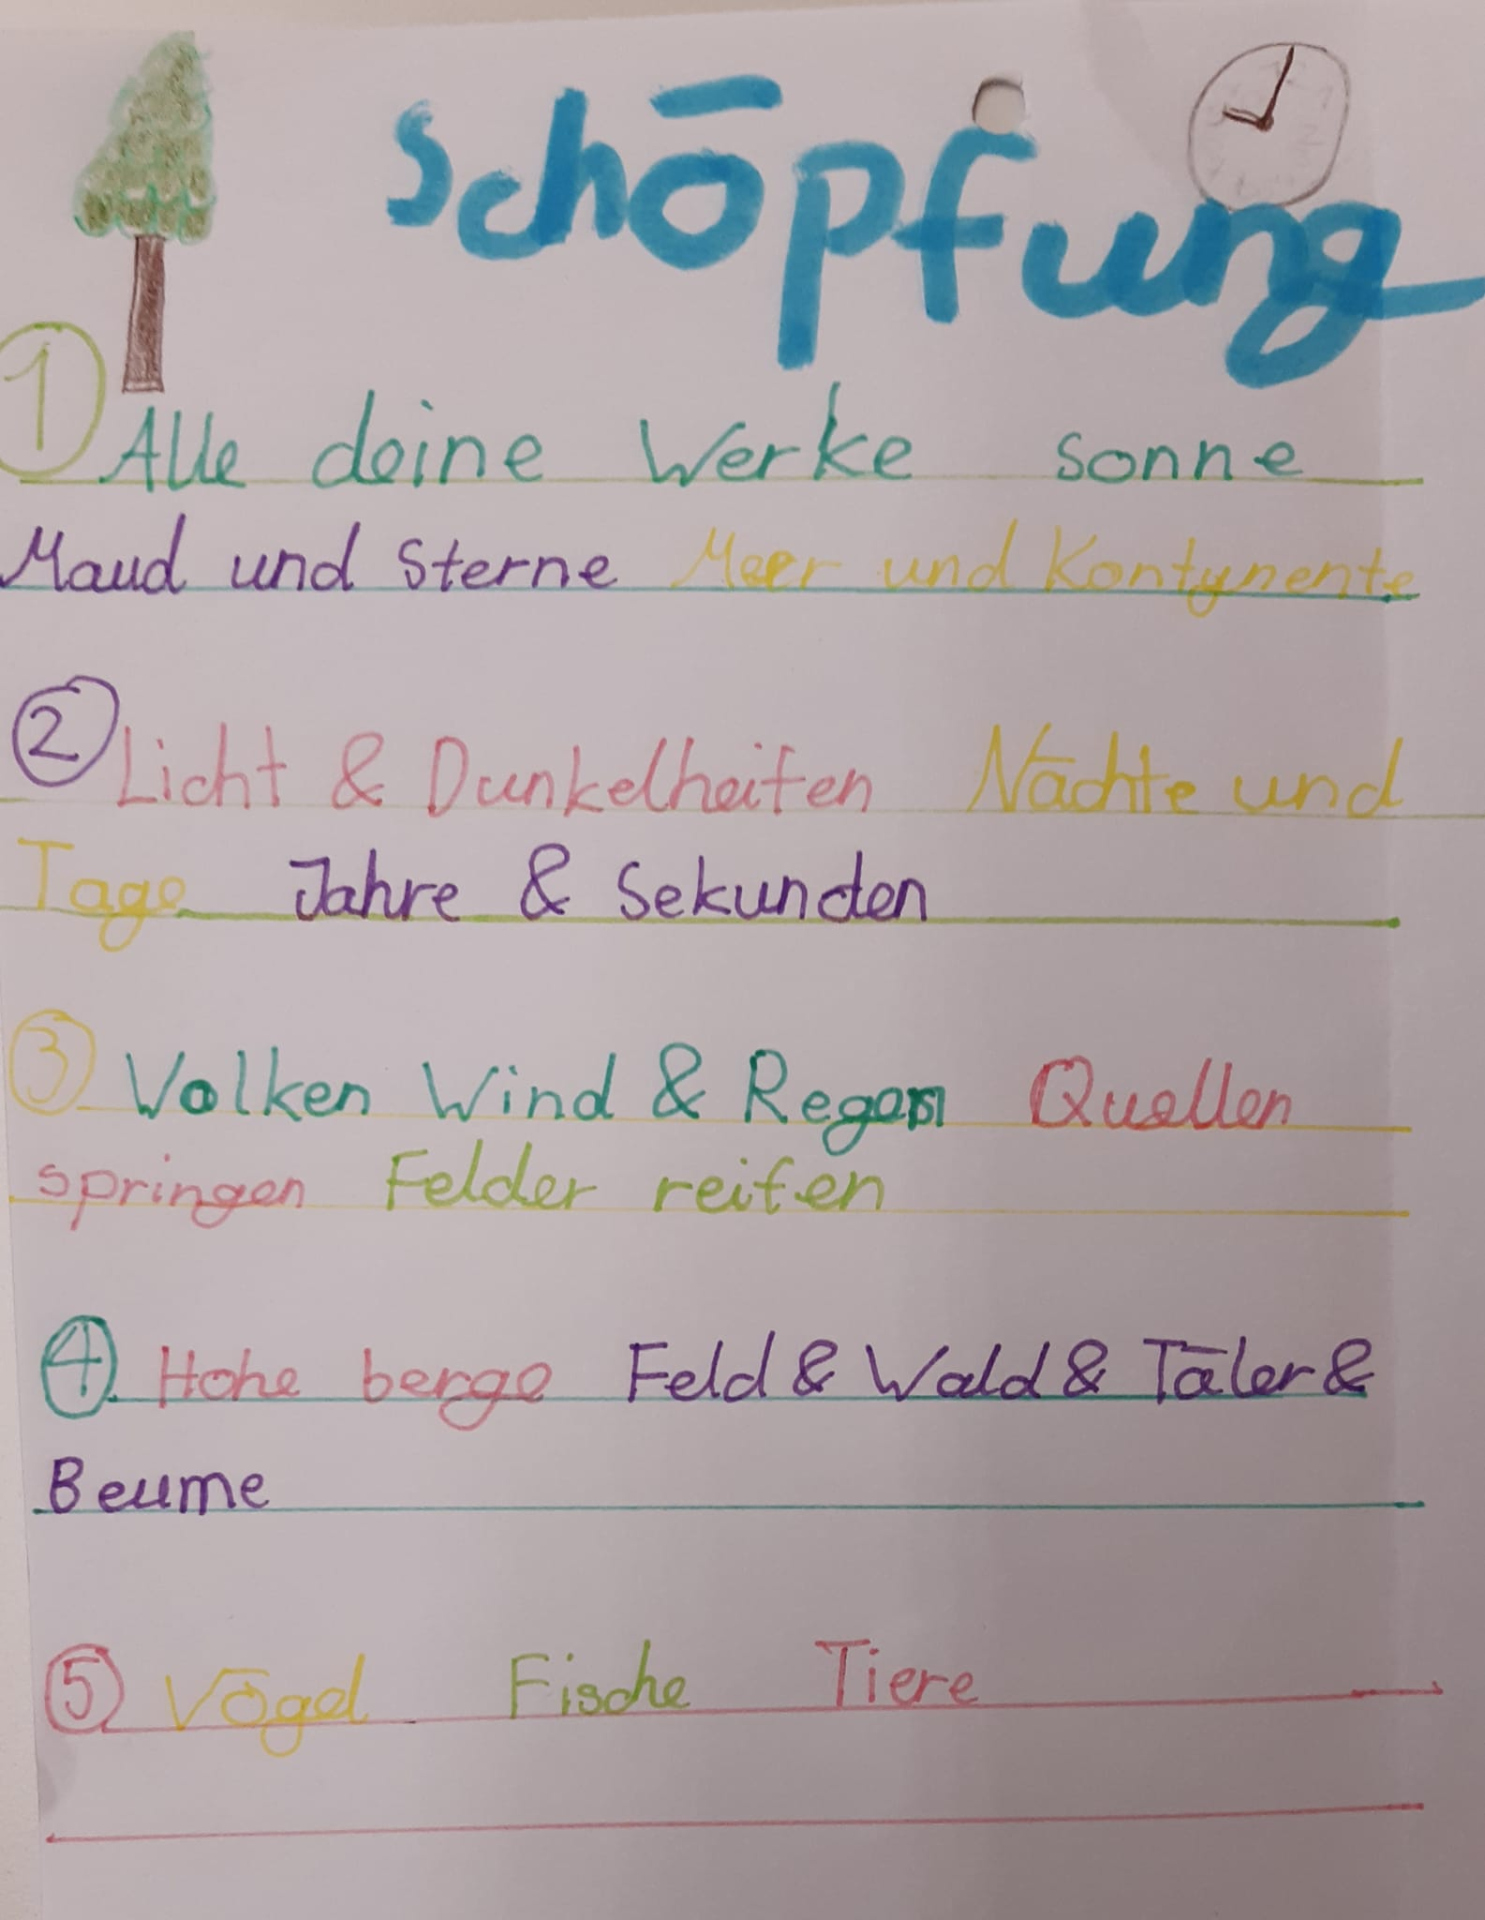 Schöpfung
1 Alle deine Werke sonne
Maud und Sterne Meer und Kontynente
2 Licht & Dunkelheiten Nächte und
Tage Jahre & Sekunden
3 Wolken Wind & Regen Quellen
springen Felder reifen
4 Hohe berge Feld & Wald & Täler &
Beume
5 Vögel Fische Tiere